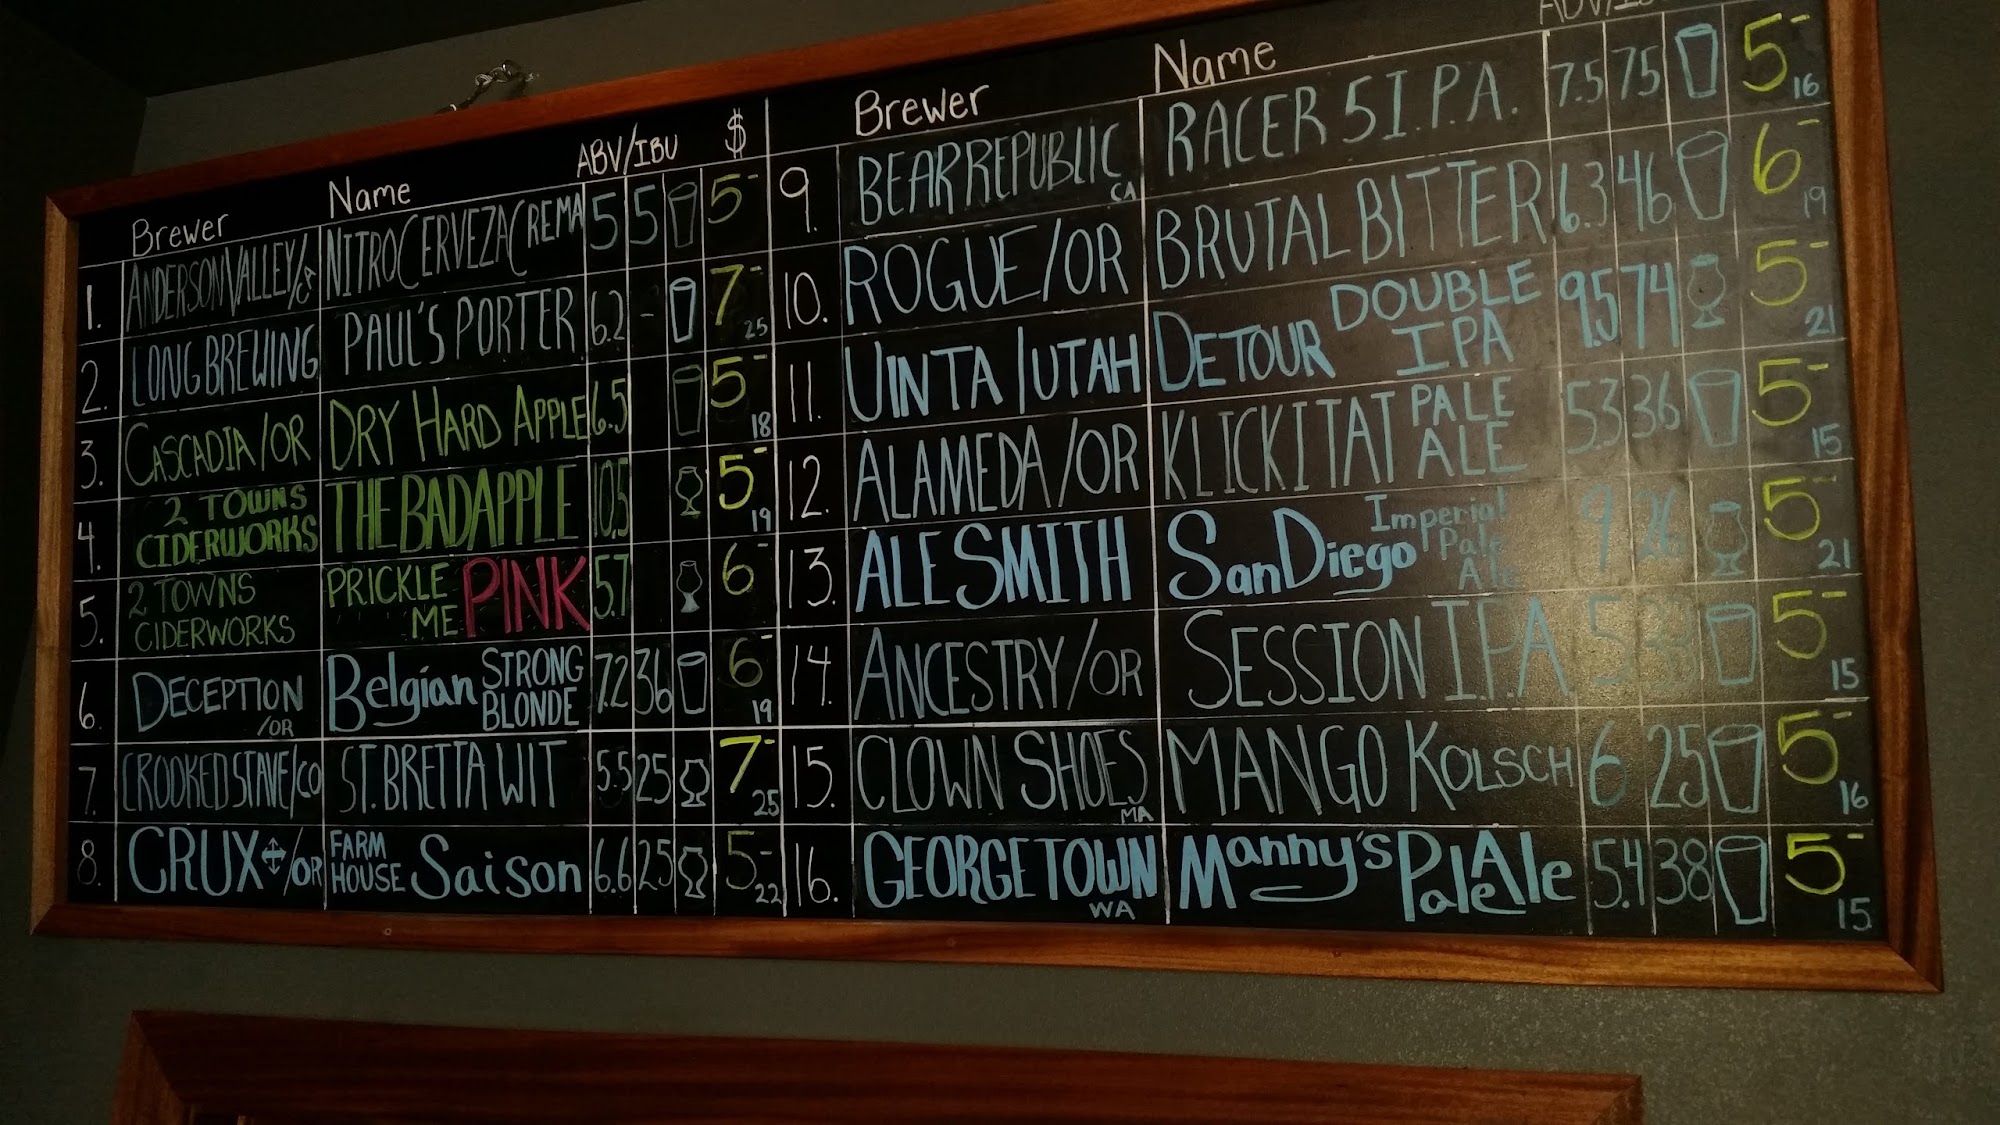 Brewer Name ABV/IBU $
1. ANDERSON VALLEY/CA NITRO CERVEZA CREMA 5 5 5-
2. LONG BREWING PAUL'S PORTER 6.2 - 7- 25
3. CASCADIA/OR DRY HARD APPLE 6.5 5- 18
4. 2 TOWNS CIDERWORKS THE BAD APPLE 10.5 5- 19
5. 2 TOWNS CIDERWORKS PRICKLE ME PINK 5.7 6-
6. DECEPTION /OR Belgian STRONG BLONDE 7.2 36 6- 19
7. CROOKED STAVE/CO ST. BRETTA WIT 5.5 25 7- 25
8. CRUX /OR FARM HOUSE Saison 6.6 25 5- 22
Brewer Name ABV/IBU
9. BEAR REPUBLIC CA RACER 5 I.P.A. 7.5 75 5- 16
10. ROGUE/OR BRUTAL BITTER 6.3 46 6- 19
11. UINTA/UTAH DETOUR DOUBLE IPA 9.5 74 5- 21
12. ALAMEDA/OR KLICKITAT PALE ALE 5.3 36 5- 15
13. ALESMITH San Diego Imperial Pale Ale 9 26 5- 21
14. ANCESTRY/OR SESSION I.P.A 5 33 5- 15
15. CLOWN SHOES MA MANGO KOLSCH 6 25 5- 16
16. GEORGETOWN WA Manny's Pale Ale 5.4 38 5- 15